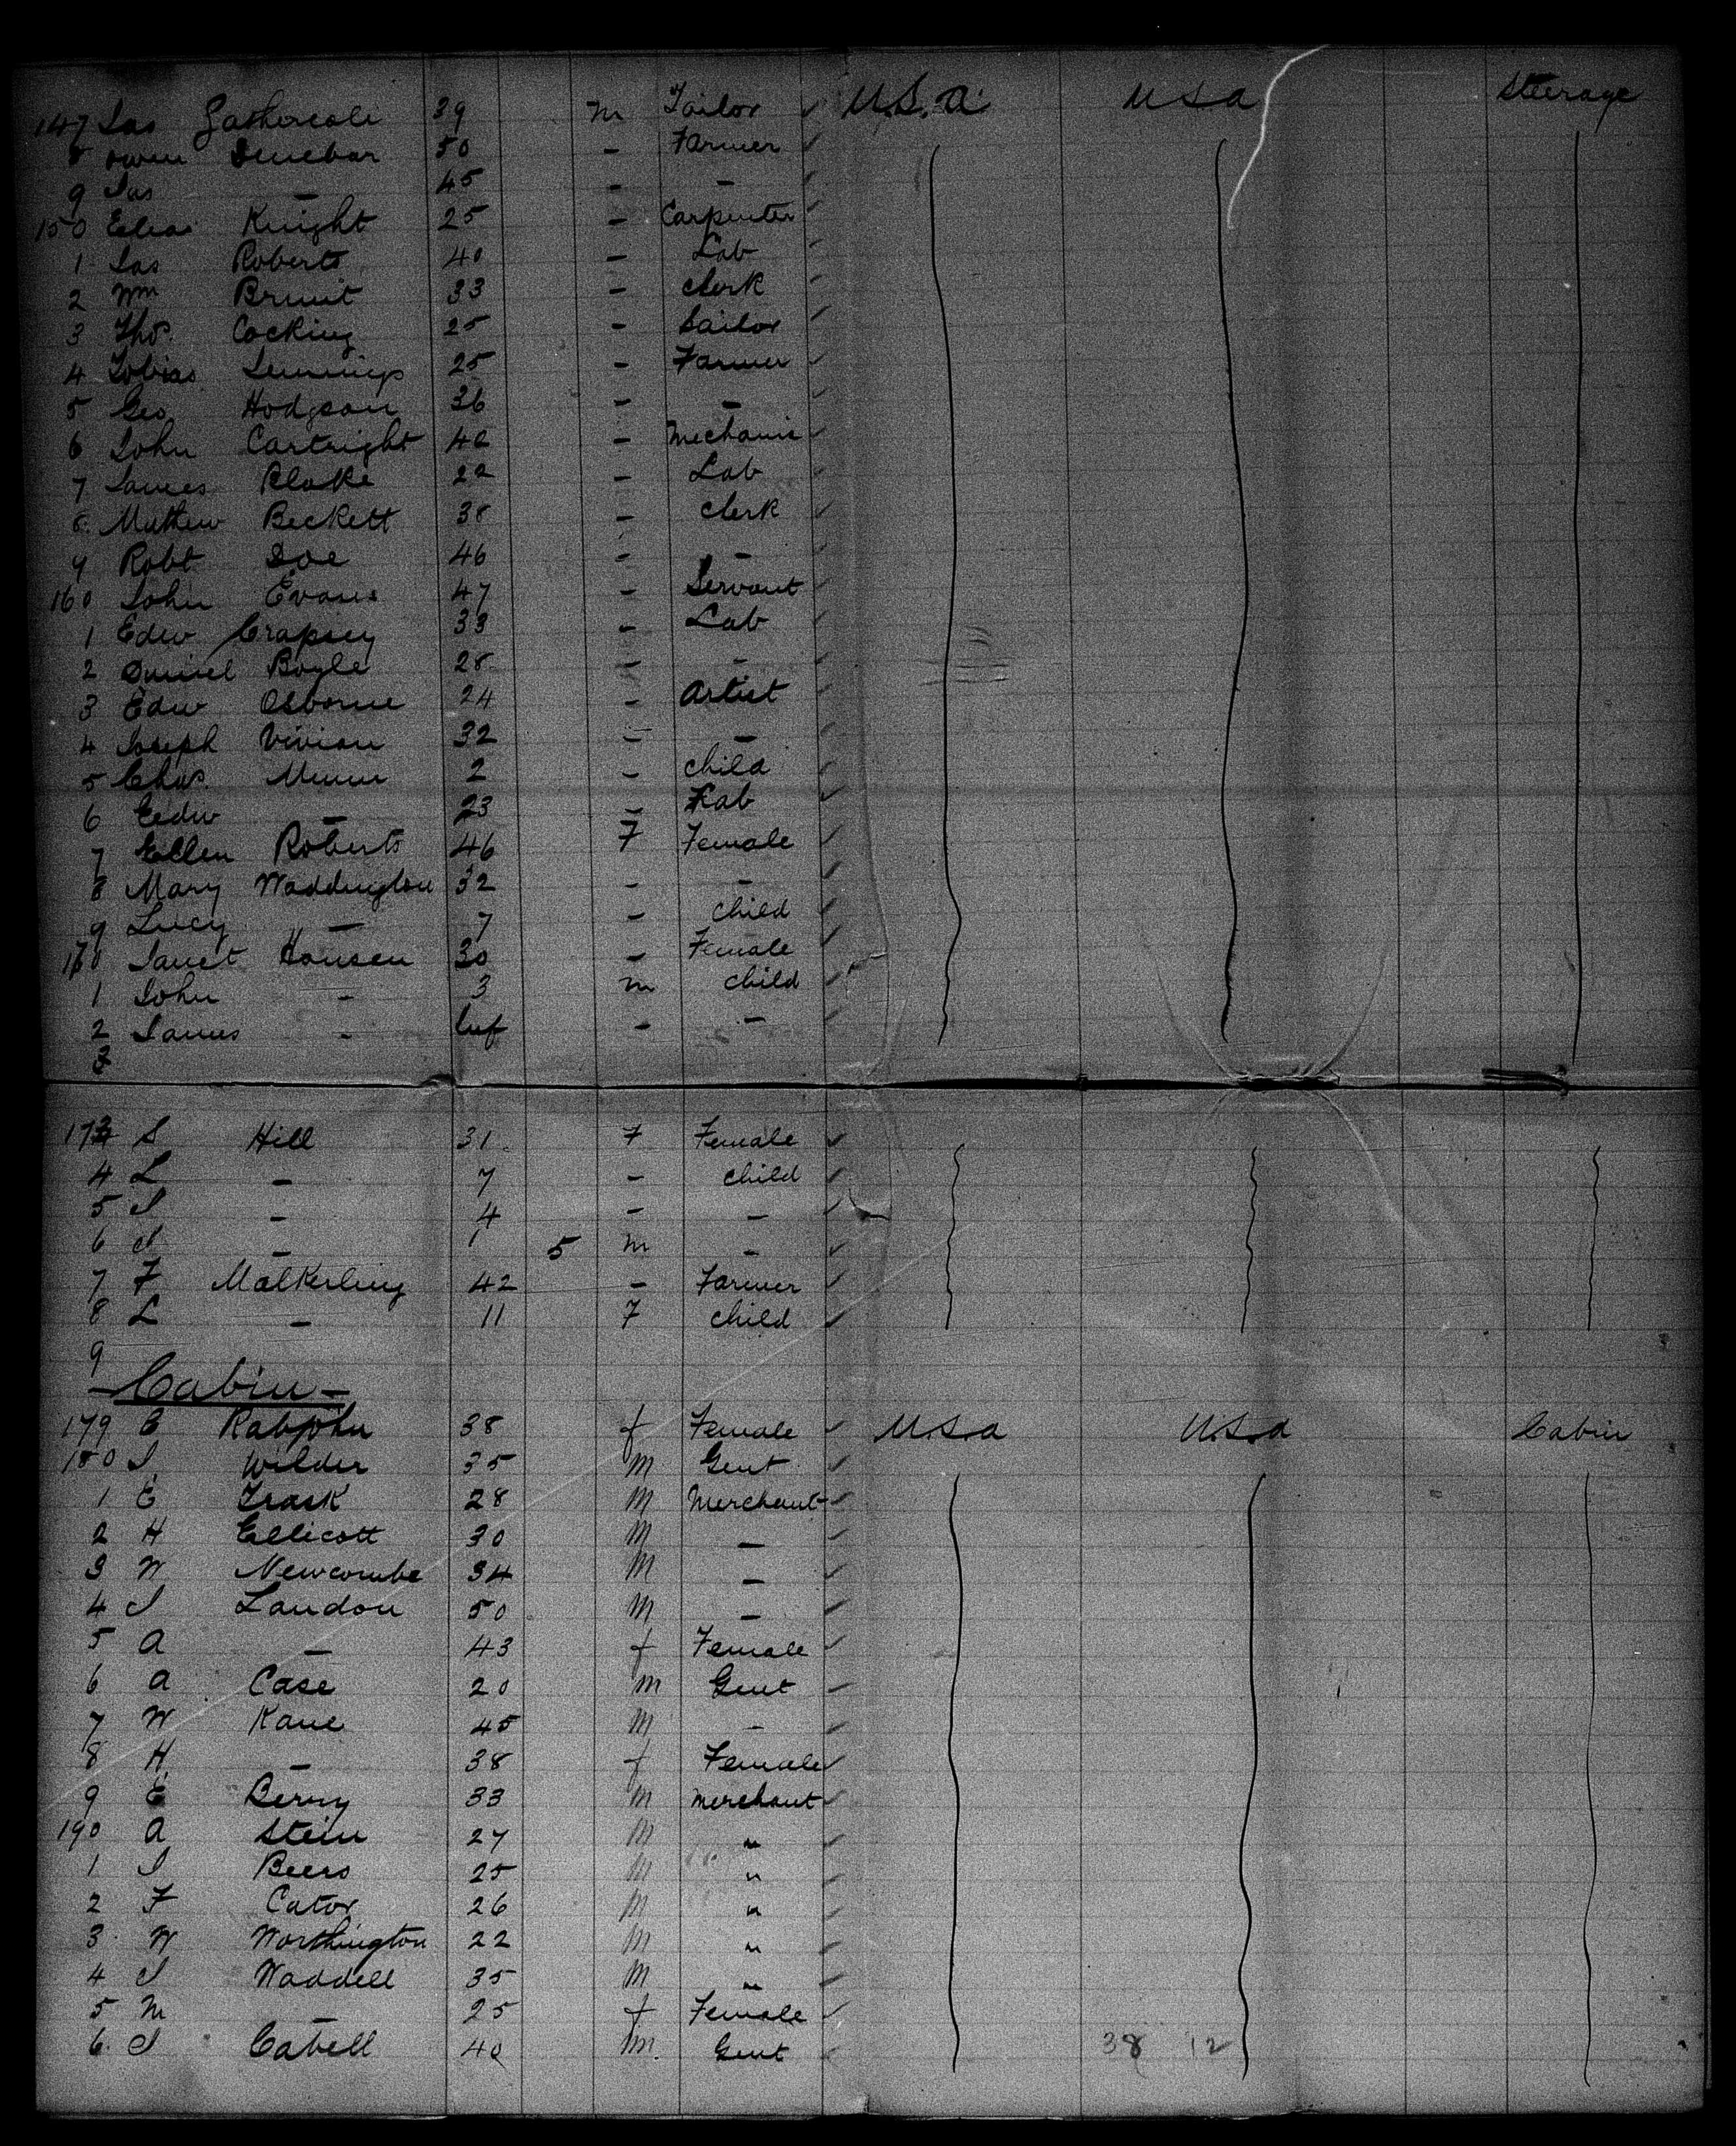 147 Jas Gathercole 39 m Tailor U.S.a. U S a Steerage
8 Owen Dunbar 50 - Farmer
9 Jas - 45 - -
150 Elias Knight 25 - Carpenter
1 Jas Roberts 40 - Lab
2 Wm 33 - Clerk
3 Thos. Cocking 25 - Sailor
4 Tobias Jennings 25 - Farmer
5 Geo Hodgson 36 - -
6 John Cartright 40 - Mechanic
7 James Blake 22 - Lab
8 Mathew Beckett 38 - Clerk
9 Robt Doe 46 - -
160 John Evans 47 - Servant
1 Edw Crapsey 33 - Lab
2 Daniel Boyle 28 - -
3 Edw Osborne 24 - Artist
4 Joseph Vivian 32 - -
5 Chas. Munn 2 - Child
6 Eedw - 23 - Lab
7 Ellen Roberts 46 F Female
8 Mary Waddington 32 - -
9 Lucy - 7 - Child
170 Janet Hansen 30 - Female
1 John - 3 m Child
2 James - Inf - -
3
173 S Hill 31 F Female
4 L - 7 - Child
5 J - 4 - -
6 J - 5 m -
7 F Malkerling 42 - Farmer
8 L - 11 F Child
9
- Cabin -
179 E Rabjohn 38 f Female U.S.a U.S.a Cabin
180 J. Wilder 35 M Gent
1 E Trask 28 M Merchant
2 H Ellicott 30 M -
3 W Newcombe 34 M -
4 J Landon 50 M -
5 A - 43 f Female
6 A Case 20 M Gent
7 W Kane 45 M -
8 H - 38 f Female
9 E Berry 33 M Merchant
190 A Stein 27 M "
1 J Beers 25 M "
2 F Cator 26 M "
3 W Worthington 22 M "
4 J Waddell 35 M "
5 M - 25 f Female
6. J Cabell 40 M. Gent 38 12